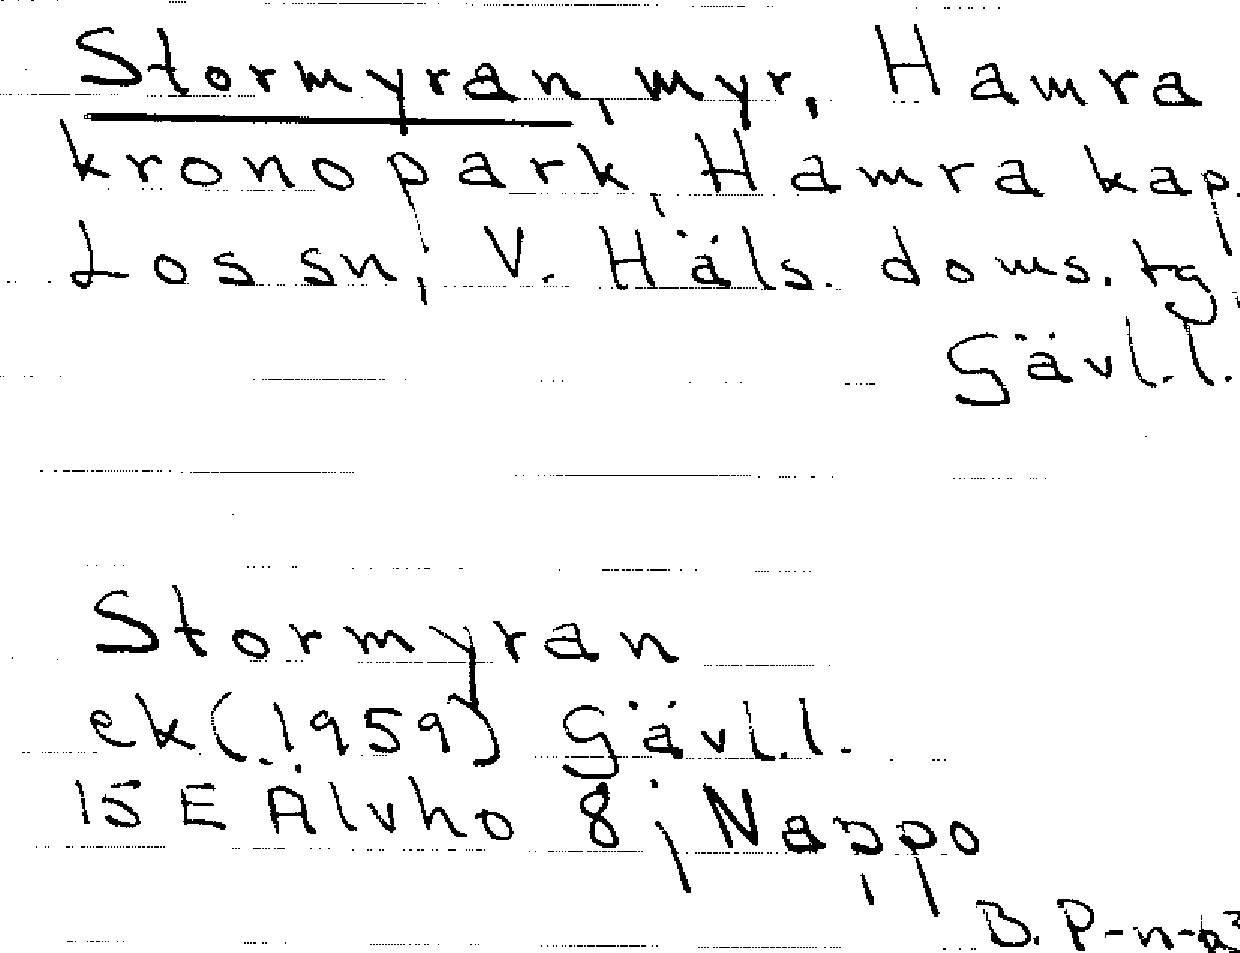 Stormyran, myr, Hamra
kronopark, Hamra kap.
Los sn, V. Häls. doms. tg,
Gävl.l.
Stormyran
ek (1959) Gävl.l.
15 E Älvho 8; Nappo
B. P-n-a